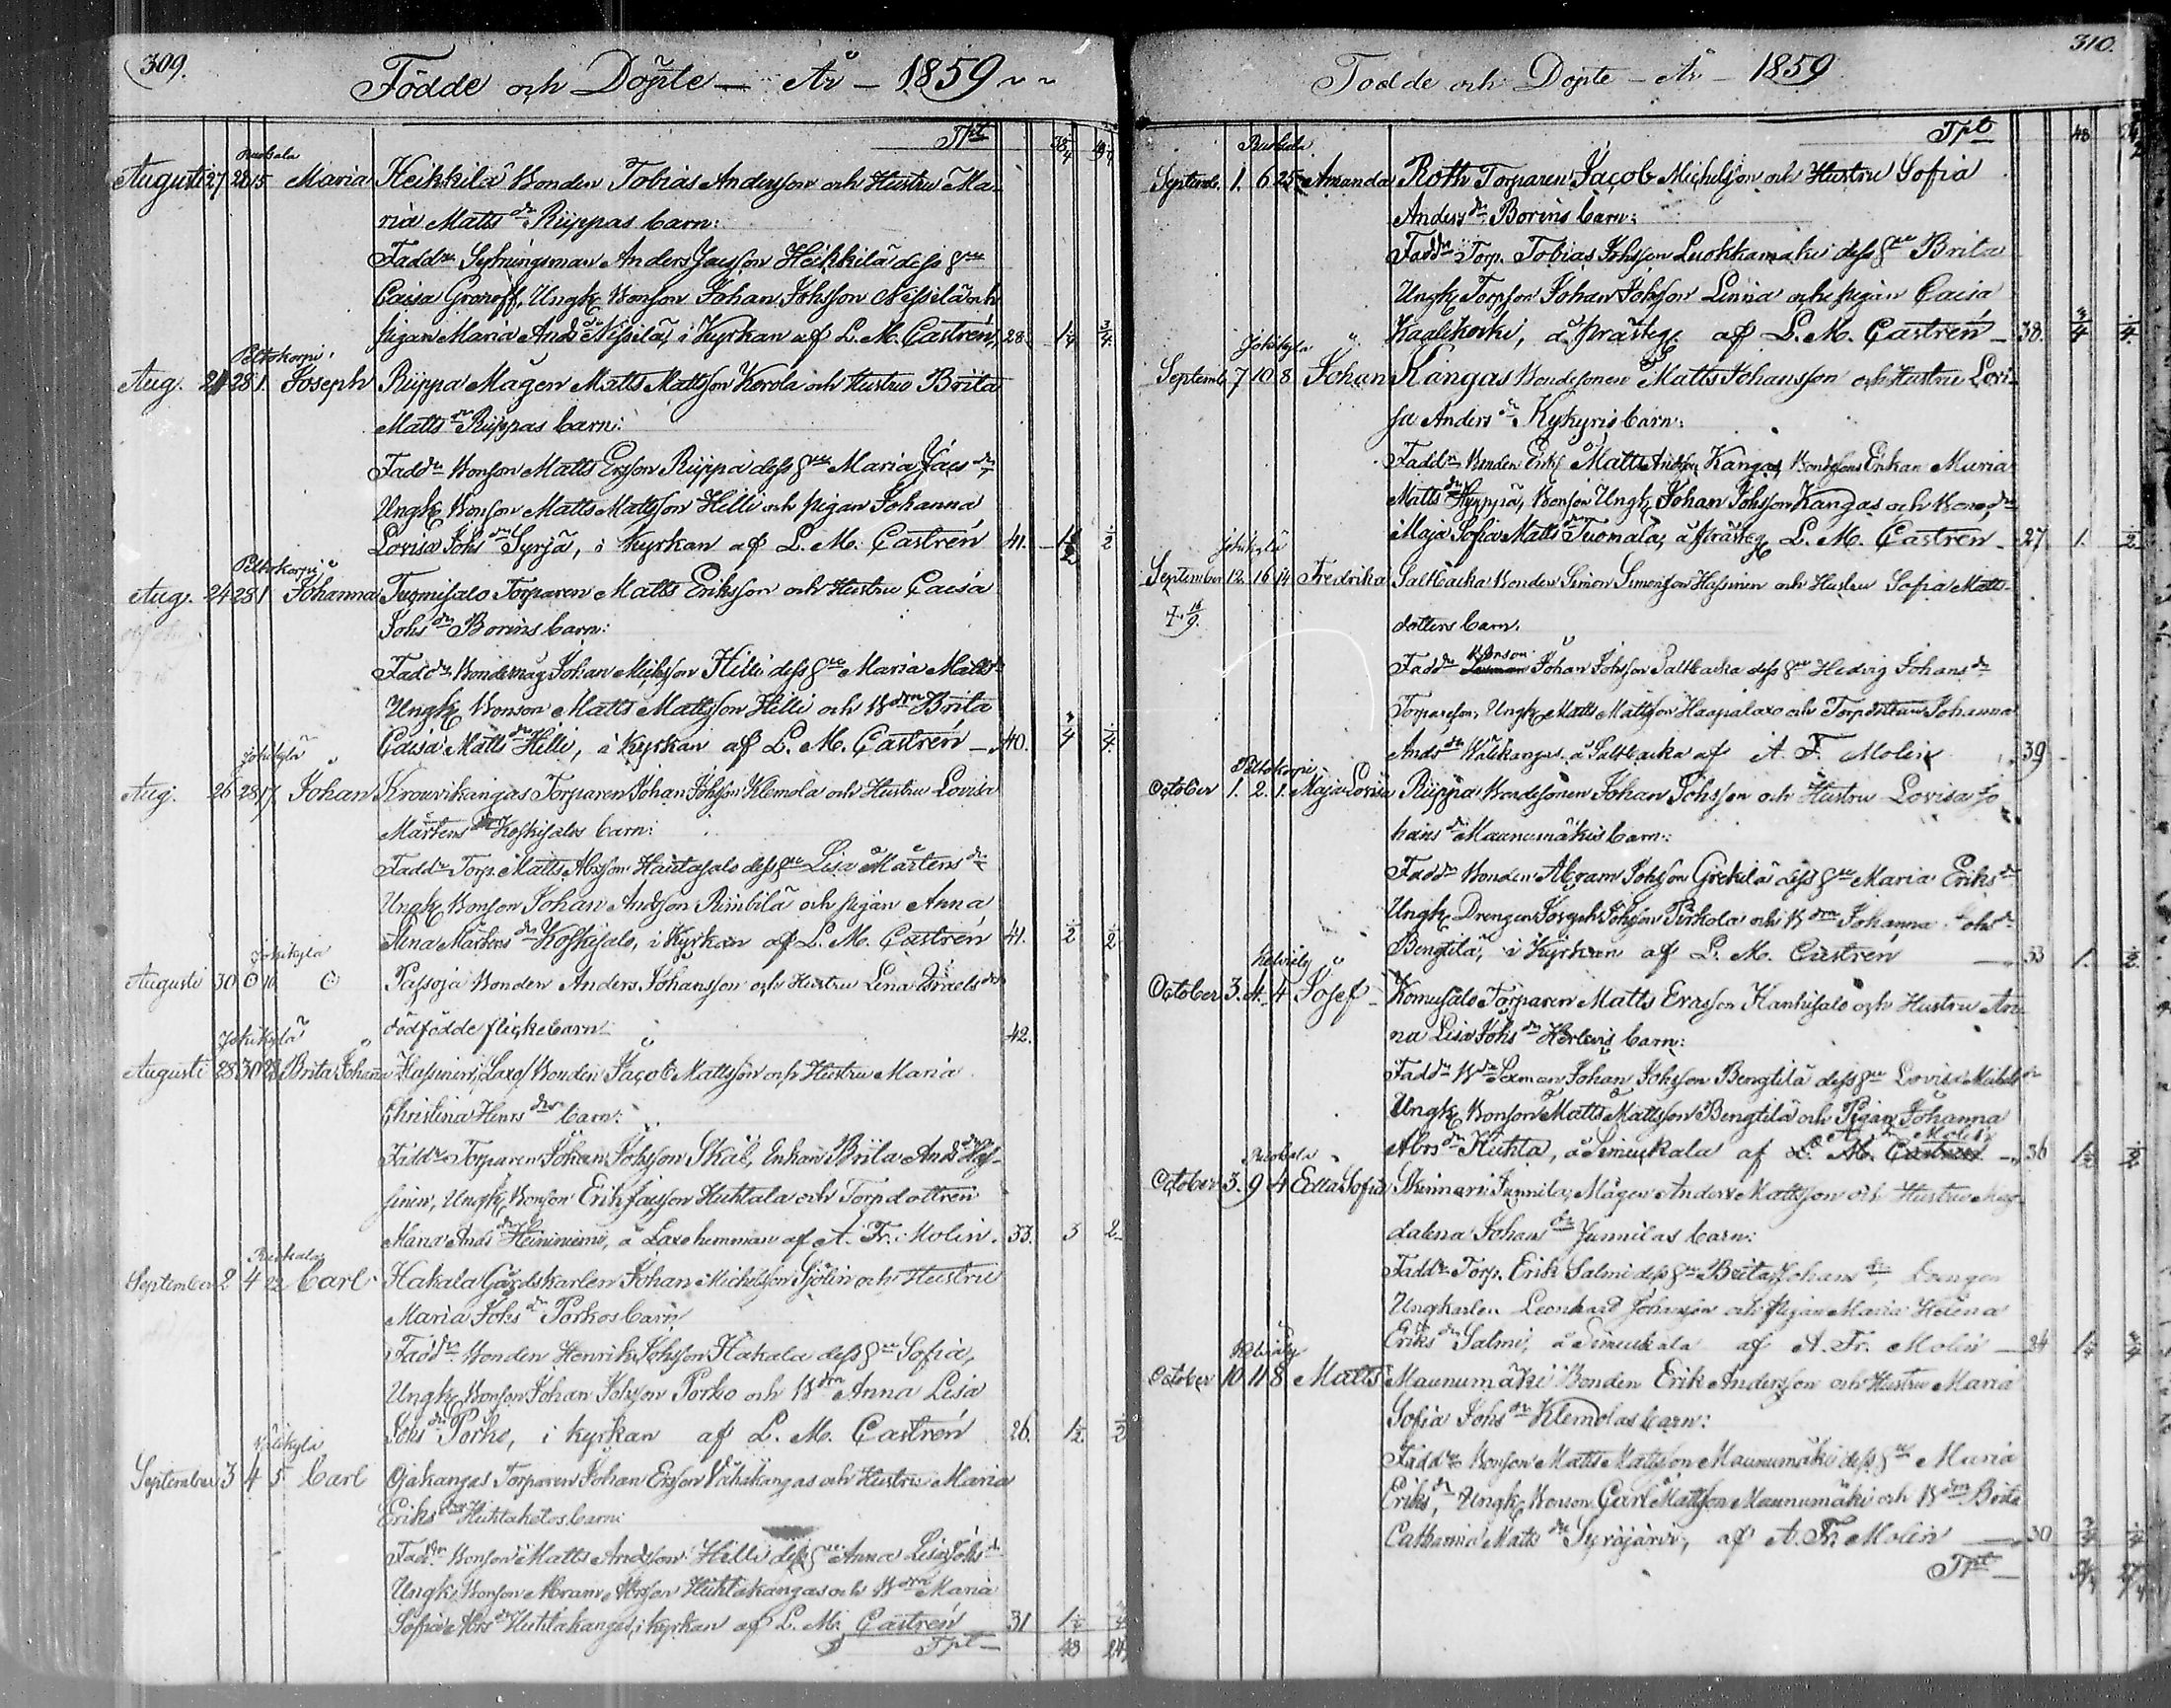 309.
Födde och Döpte — År — 1859
Tpt
Ruskala
Augusti 27 28 15 Maria Heikkilä Bonden Tobias Andersson och Hustru Ma-
ria Matts dr Riippas barn:
Fadd. Sytningsman Anders Jacsson Heikkilä dess hu
Caisa Granoff, Ungk. Bonson Johan Johsson Nissilä och
pigan Maria And. dr Nissilä, i Kyrkan af L. M. Castrén, 28.
Peltokorpi
Aug. 28 1. Joseph Riippa Mågen Matts Mattsson Korola och Hustru Brita
Matts dr Riippas barn:
Fadd. Bonson Matts Ersson Riippa dess hu Maria Jacs dr
Ungk. Bonson Matts Mattsson Hilli och pigan Johanna
Lovisa Johs dr Syrjä, i kyrkan af L. M. Castrén 41.
Peltokorpi
Aug. 24 28 1 Johanna Tuomisalo Torparen Matts Eriksson och Hustru Caisa
Johs dr Borins barn:
Fadd. Bondemåg Johan Michsson Hilli dess hu Maria Matts dr
Ungk. Bonson Matts Mattsson Hilli och B dtr Brita
Caisa Matts dr Hilli, i Kyrkan af L. M. Castrén — 40.
Jokikylä
Aug. 26 28 17 Johan Krouvikangas Torparen Johan Johsson Klemola och Hustru Lovisa
Mårtens dr Koskisalos barn:
Fadd. Torp. Matts Abrsson Hautasalo dess hu Lisa Mårtens dr
Ungk. Bonson Johan Andsson Rimbilä och pigan Anna
Stina Mårtens dr Koskisalo, i Kyrkan af L. M. Castrén 41.
Jokikylä
Augusti 30 0 16 Passoja Bonden Anders Johansson och Hustru Lena Israels dr
dödfödde flickebarn 42.
Jokikylä
Augusti 28 30 Brita Johanna Hassinen, Laxo Bonden Jacob Mattsson och Hustru Maria
Christina Henrs dr barn:
Fadd. Torparen Johan Johsson Skäl, Enkan Brita And. dr Has-
sinen, Ungk. Bonson Erik Jacsson Huhtala och Torpdottren
Maria Ands dr Heininiemi, å Laxo hemman af A. Fr. Molin. 33. 3 2
Ruskala
September 2 4 22 Carl Hakala Gårdskarlen Johan Michelsson Sjölin och Hustru
Maria Johs dr Porkos barn
Fadd. Bonden Henrik Johsson Hakala dess hu Sofia,
Ungk. Bonson Johan Johsson Porko och B dtr Anna Lisa
Johs dr Porko, i kyrkan af L. M. Castrén 26.
September 3 4 5 Carl Ojakangas Torparen Johan Ersson Vähäkangas och Hustru Maria
Eriks dr Huhtaketos barn:
Fadd. Bonson Matts Andsson Hilli dess hu Anna Lisa Johs dr
Ungk. Bonson Abram Abrsson Huhtakangas och B dtr Maria
Sofia Abrs dr Huhtakangas, i kyrkan af L. M. Castrén 31
Tpt — 48 24
310.
Födde och Döpte — År — 1859
Tpt 48
Ruskala
Septemb. 1. 6 25 Amanda Roth Torparen Jacob Michelsson och Hustru Sofia
Anders dr Borins barn:
Fadd. Torp. Tobias Johsson Luokkamäki dess hu Brita
Ungk. Torpson Johan Johsson Linna och pigan Caisa
Kaalikoski, å prästeg. af L. M. Castrén — 38.
Jokikylä
Septemb. 7 10 8 Johan Kangas Bondesonen Matts Johansson och Hustru Lovi-
sa Anders dr Kykyris barn:
Fadd. Bonden Matts Andsson Kangas, Bondesons Enkan Maria
Matts dr Hyyppä, Bonson Ungk. Johan Johsson Kangas och
Maja Sofia Matts dr Tuomala, å prästeg. L. M. Castrén — 27 1.
Jokikylä
September 12 16 14 Fredrika Saltbacka Bonden Simon Simonsson Hassinen och Hustru Sofia Matts-
dotters barn.
Fadd. Bonson Johan Johsson Saltbacka dess hu Hedvig Johans dr
Torpareson, Ungk. Matts Mattsson Haapalaxo och Torpdottren Johanna
Ands dr Välikangas, å Saltbacka af A. F. Molin 39
Peltokorpi
October 1. 2. 1. Maja Lovisa Riippa Bondesonen Johan Johsson och Hustru Lovisa Jo
hans dr Maunumäkis barn:
Fadd. Bonden Abram Johsson Grekilä dess hu Maria Eriks dr
Ungk. Drengen Joseph Johsson Pirkola och B dtr Johanna Johs dr
Bengtilä, i Kyrkan af L. M. Castrén — 33 1.
October 3. 4. 4 Josef Komusalo Torparen Matts Erasson Kankisalo och Hustru An-
na Lisa Johs dr Herlevis barn:
Fadd. Johan Johsson Bengtilä dess hu Lovisa Michels dr
Ungk. Bonson Matts Mattsson Bengtilä och Pigan Johanna
Abrs dr Kuhla, å Simukala af L. M. Castrén A. Fr. Molin 36
Ruskala
October 3. 9 4 Edla Sofia Skinnari Junnila, Mågen Anders Mattsson och Hustru Mag-
dalena Johans dr Junnilas barn:
Fadd. Torp. Erik Salmi dess hu Brita Johans dr
Ungkarlen Leonhard Johansson och pigan Maria Helena
Eriks dr Salmi, å Simukala af A. Fr. Molin — 34
October 10 11 8 Matts Maunumäki Bonden Erik Andersson och Hustru Maria
Sofia Johs dr Klemolas barn:
Fadd. Bonson Matts Mattsson Maunumäki dess hu Maria
Eriks dr, Ungk. Bonson Carl Mattsson Maunumäki och B dtr Brita
Catharina Matts dr Syräjärvi, af A. Fr. Molin — 30
Tpt —